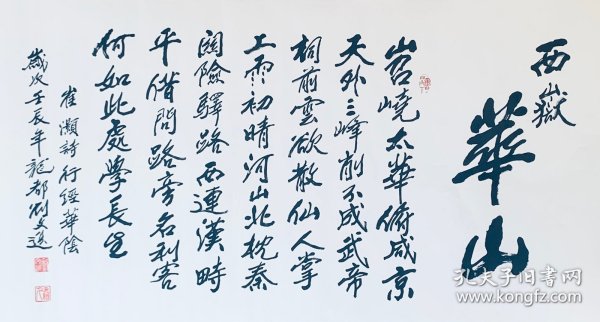 西嶽
華山
岧嶢太華俯咸京
天外三峰削不成武帝
祠前雲欲散仙人掌
上雨初晴河山北枕秦
關險驛路西連漢畤
平借問路旁名利客
何如此處學長生
崔灝詩行經華陰
歲次壬辰年龍都劉文選
孔夫子旧书网
www.kongfz.com